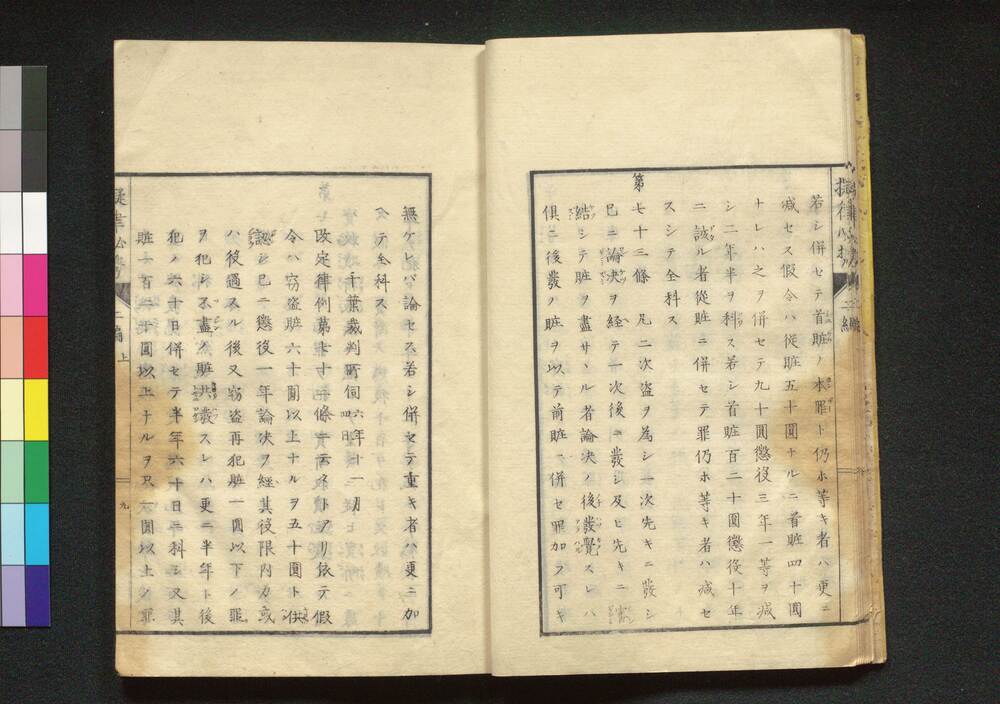 若シ併セテ首贓ノ本罪ト仍ホ等キ者ハ更ニ
減セス假令ハ從贓五十圓ナルニ首贓四十圓
ナレハ之ヲ併セテ九十圓懲役三年一等ヲ減
シ二年半ヲ科ス若シ首贓百二十圓懲役十年
ニ誠ル者從贓ニ併セテ罪仍ホ等キ者ハ減セ
スシテ全科ス
第七十三條 凡二次盜ヲ為シ一次先キニ發シ
已ニ論決ヲ経テ一次後ニ發シ及ヒ先キニ
結シテ贓ヲ盡サヽル者論決ノ後發覺スレハ
倶ニ後發ノ贓ヲ以テ前贓ニ併セ罪加フ可キ
無ケレバ論セス若シ併セテ重キ者ハ更ニ加
ヘテ全科ス
千葉裁判所伺 六年十一月
改定律例第七十 條ニ アリ依テ假
令ハ窃盜贓六十圓以上ナルヲ五十圓ト供
認シ已ニ懲役一年論決ヲ経其役限内カ或
ハ役過スル後又窃盜再犯贓一圓以下ノ罪
ヲ犯シ不盡ノ贓共ニ發スレハ更ニ半年ト後
犯ノ六十日併セテ半年六十日ニ科シ又其
贓一百二十圓以上ナルヲ只 圓以上ノ罪
九